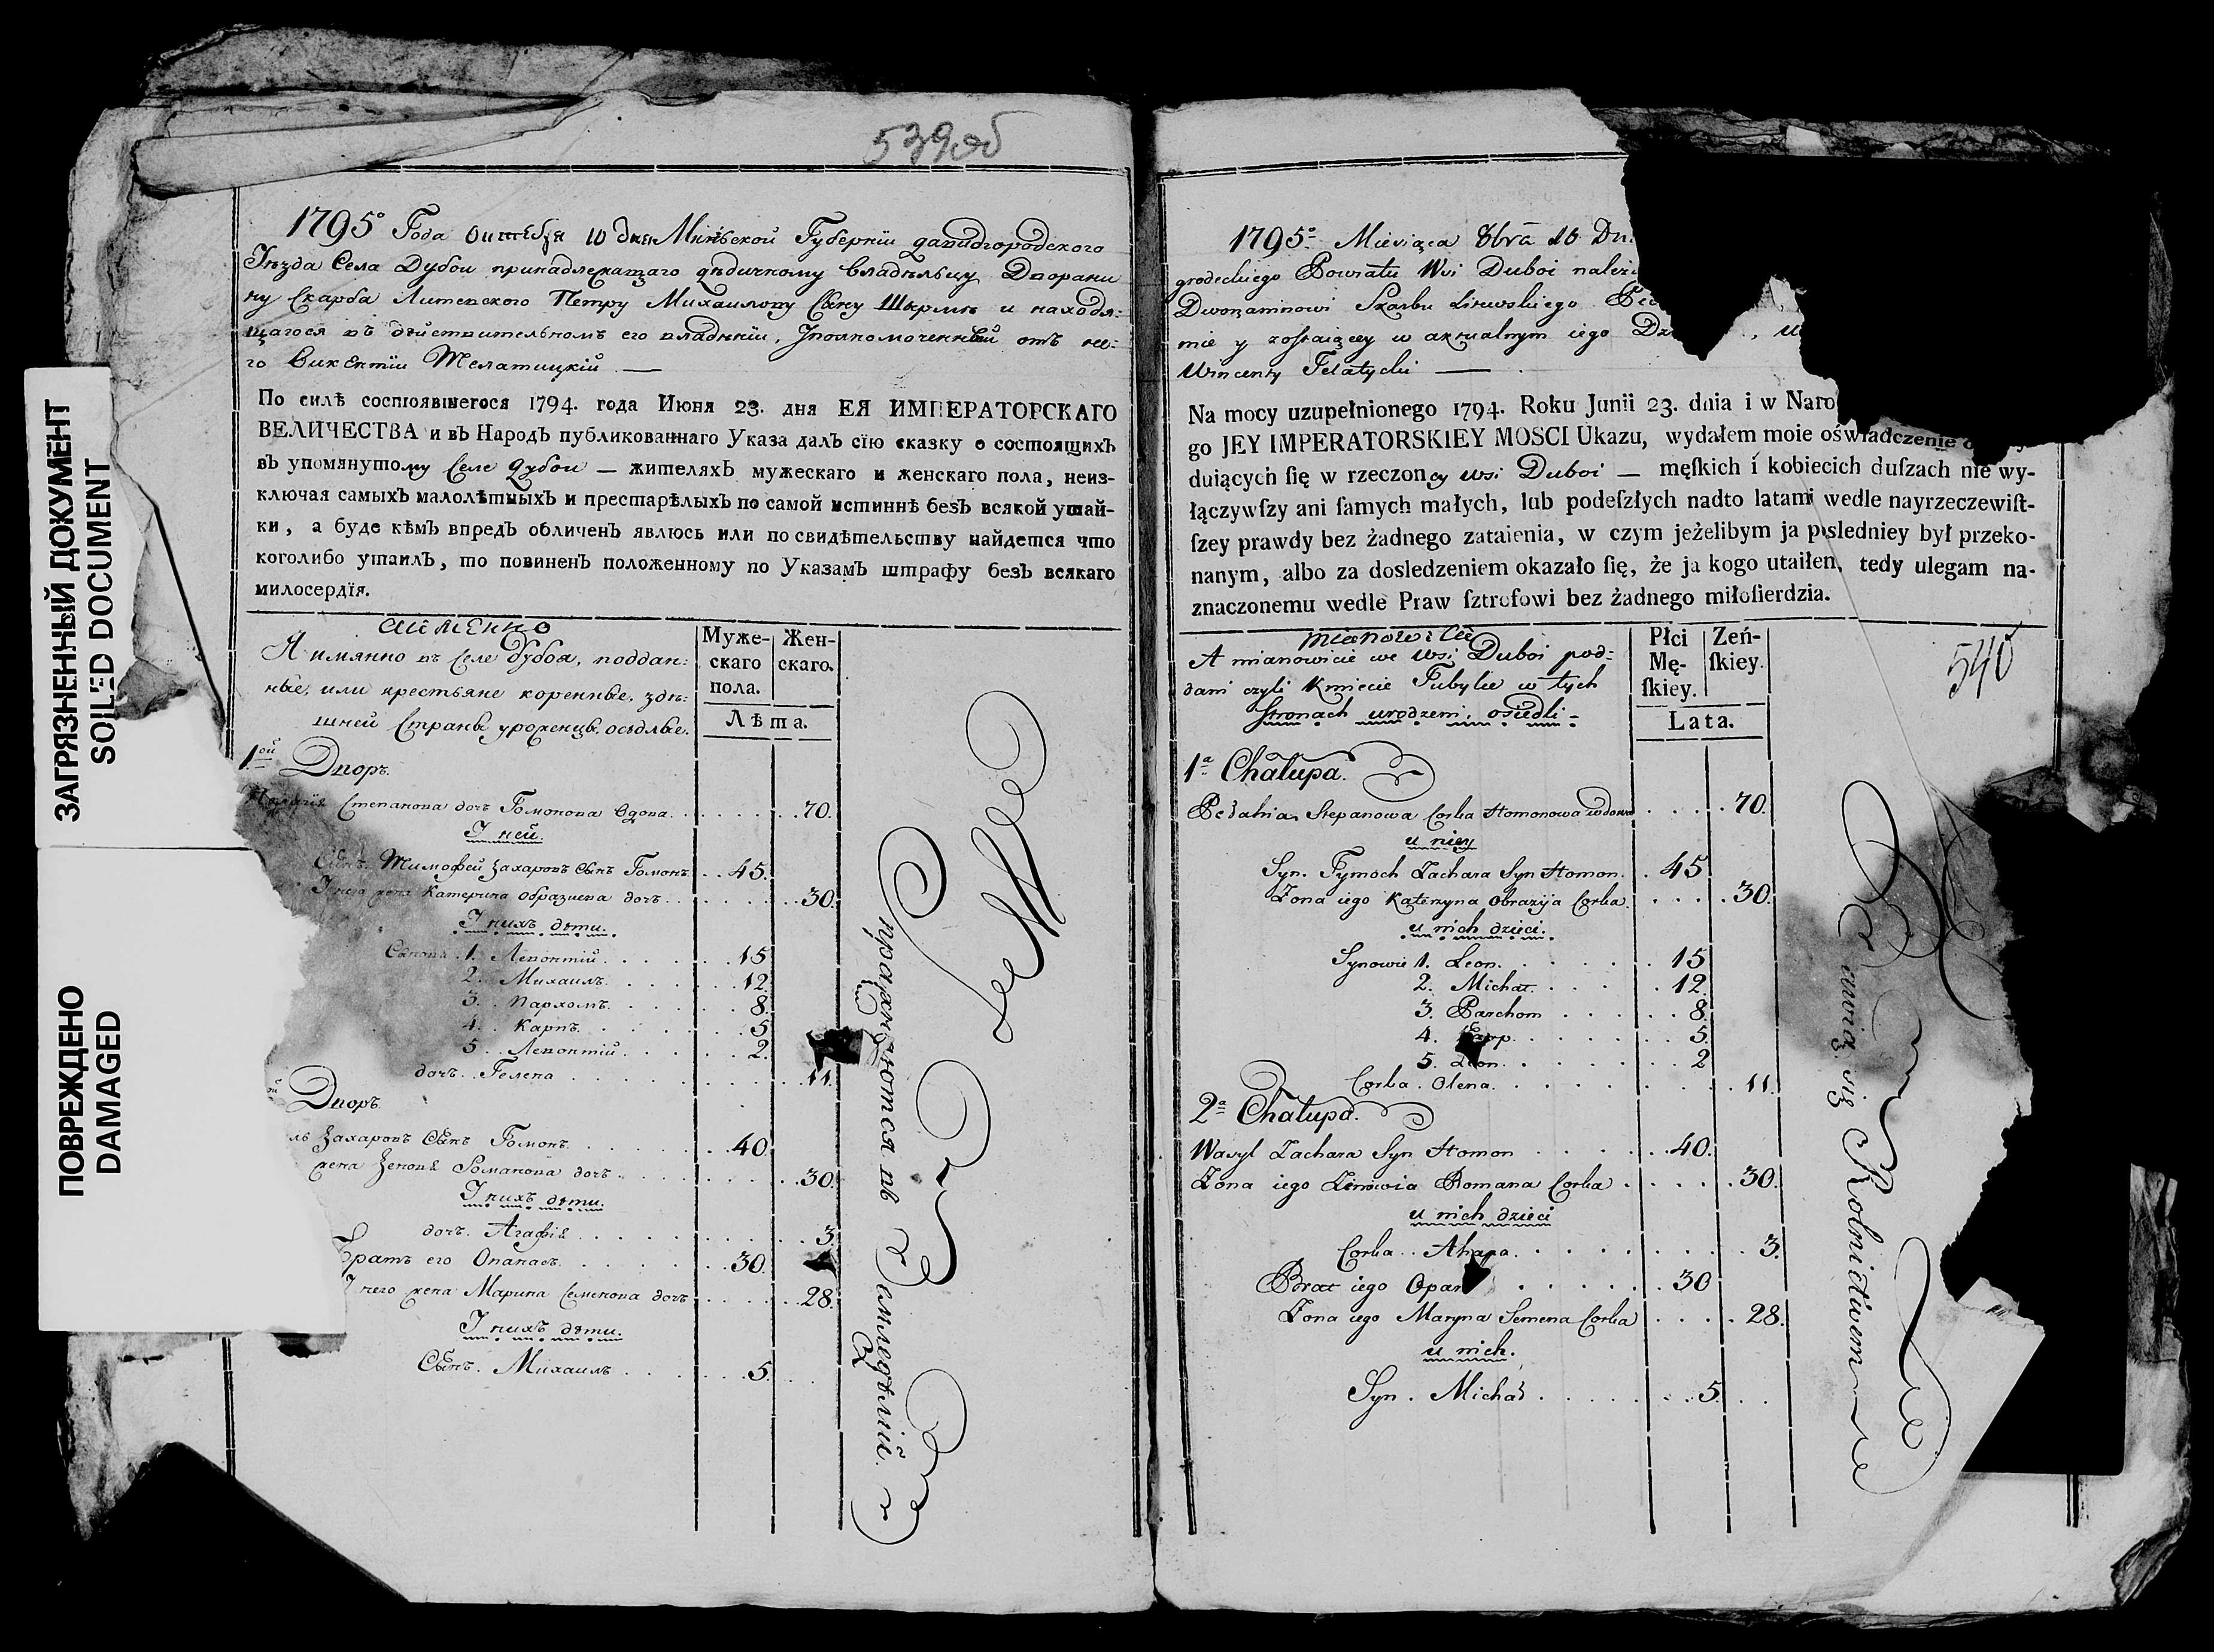 ЗАГРЯЗНЕННЫЙ ДОКУМЕНТ
SOILED DOCUMENT
ПОВРЕЖДЕНО
DAMAGED
539об
1795º Года Октября 10 дня Минской Губернїи давидгородского
Уѣзда Села Дубои принадлежащаго дѣдичному владѣльцу Дворяни
ну Скарба Литевского Петру Михаилову Сыну Ширмѣ и находя:
щагося въ дѣйствительномъ его владѣнїи, Уполномоченный отъ не:
го Викентїи Телатицкїй —
По силѣ состоявшегося 1794. года Июня 23. дня ЕЯ ИМПЕРАТОРСКАГО
ВЕЛИЧЕСТВА и въ Народъ публикованнаго Указа далъ сїю сказку о состоящихъ
въ упомянутому Селе Дубои — жителяхъ мужескаго и женскаго пола, неиз-
ключая самыхъ малолѣтныхъ и престарѣлыхъ по самой истиннѣ безъ всякой утай-
ки, а буде кѣмъ впредъ обличенъ явлюсь или по свидѣтельству найдется что
коголибо утаилъ, то повиненъ положенному по Указамъ штрафу безъ всякаго
милосердїя.
аименно
А имянно въ Селе Дубоя, поддан:
ные, или крестьяне коренные, здѣ:
шней Страны уроженцы, осѣдлые.
Муже-
скаго
пола.
Жен-
скаго.
Лѣта.
1ой Дворъ.
Степанова дочь Гомонова вдова. 70.
У ней.
Сынъ Тимофей Захаровъ Сынъ Гомонъ. 45.
У него жена Катерина Образиева дочь. 30.
У нихъ дѣти.
Сыновя. 1. Левонтїй. 15
2. Михаилъ. 12
3. Пархомъ. 8.
4. Карпъ. 5
5. Левонтїй. 2.
дочь. Гелена 11.
ой Дворъ.
ль Захаровъ Сынъ Гомонъ. 40
жена Зеновя Романова дочь. 30.
У нихъ дѣти.
дочь. Агафїя 3.
Братъ его Опанасъ. 30.
У него жена Марина Семенова дочь 28.
У нихъ дѣти.
Сынъ. Михаилъ 5.
упражняются въ Земледѣлїй.
1795º. Miesiąca 8bra 10 Dn
grodeckiego Powiatu Wsi Duboi należ
Dworzaninowi Skarbu Litewskiego
mie y zostaiącey w aktualnym iego Dz
Wincenty Telatycki —
Na mocy uzupełnionego 1794. Roku Junii 23. dnia i w Naro
go JEY IMPERATORSKIEY MOSCI Ukazu, wydałem moie oświadczenie o
duiących ſię w rzeczoney wsi Duboi — męſkich i kobiecich duſzach nie wy-
łączywſzy ani ſamych małych, lub podeſzłych nadto latami wedle nayrzeczewiſt-
ſzey prawdy bez żadnego zataienia, w czym jeżelibym ja posledniey był przeko-
nanym, albo za dosledzeniem okazało ſię, że ja kogo utaiłen, tedy ulegam na-
znaczonemu wedle Praw ſztrofowi bez żadnego miłoſierdzia.
mianowicie
A mianowicie we wsi Duboi pod=
dani czyli Kmiecie Tubylce w tych
stronach urodzeni, osiedli =
Płci
Mę-
ſkiey.
Zeń-
ſkiey.
Lata.
540
1ª Chałupa.
Pedahia Stepanowa Corka Homonowa wdowa 70.
u niey
Syn. Tymoch Zachara Syn Homon. 45
Żona iego Katerzyna Obrazija Corka. 30.
u nich dzieci.
Synowie 1. Leon. 15
2. Michał. 12.
3. Parchom 8.
4. Karp. 5.
5. Leon. 2
Corka. Olena. 11.
2ª Chałupa.
Wasyl Zachara Syn Homon 40.
Żona iego Zinowia Romana Corka. 30.
u nich dzieci
Corka. Ahapa. 3.
Brat iego Opan 30
Żona iego Maryna Semena Corka 28.
u nich.
Syn. Michał 5.
bawią się Rolnictwem